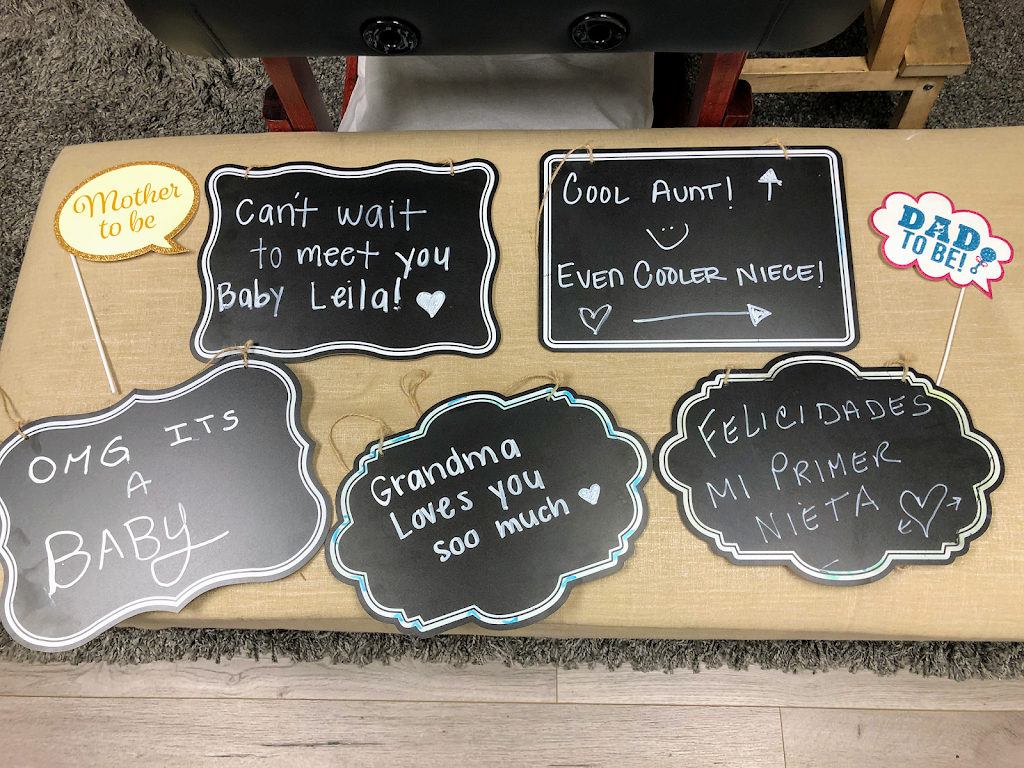 Mother
to be
Can't wait
to meet you
Baby Leila!
COOL AUNT!
EVEN COOLER NIECE!
DAD
TO BE!
OMG ITS
A
BABY
Grandma
Loves you
soo much
FELICIDADES
MI PRIMER
NIETA